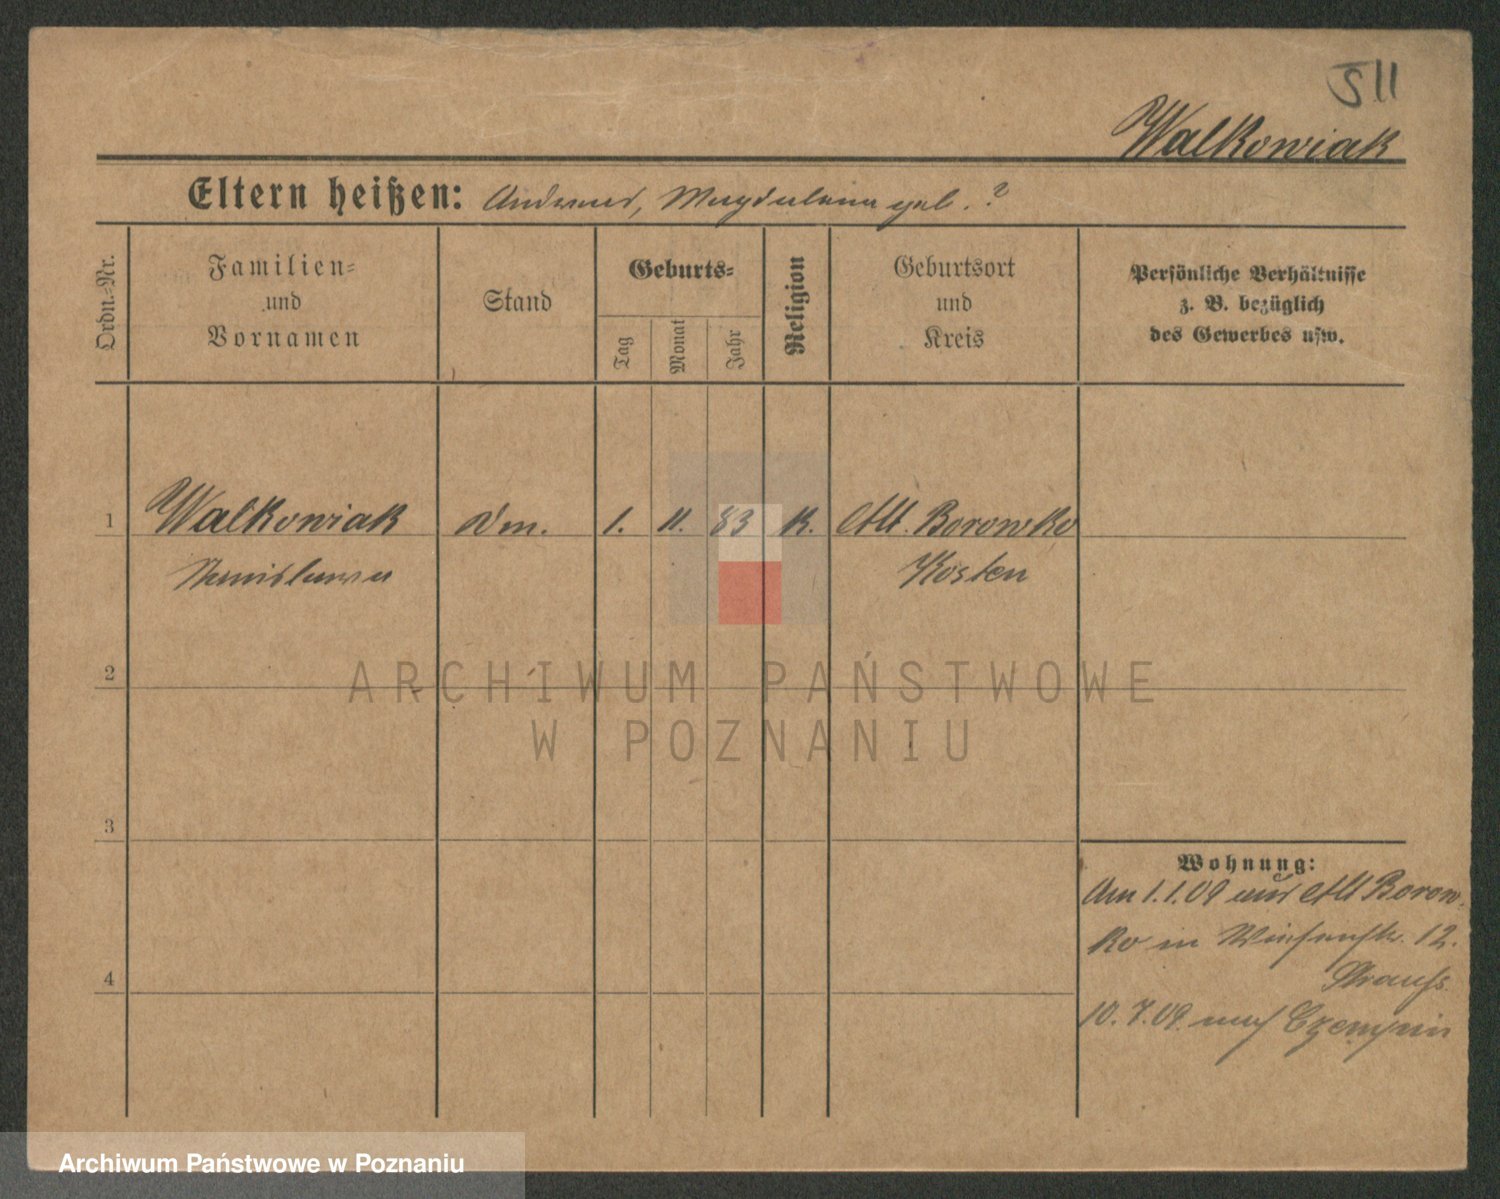 511
Walkowiak
Eltern heißen: Andreas, Magdalena geb. ?
Ordn.-Nr.
Familien-
und
Vornamen
Stand
Geburts-
Tag
Monat
Jahr
Religion
Geburtsort
und
Kreis
Persönliche Verhältnisse
z. B. bezüglich
des Gewerbes usw.
1 Walkowiak Dm. 1. 11. 83 K. Alt. Borowko
Stanislawa Kosten
2
ARCHIWUM PAŃSTWOWE
W POZNANIU
3
Wohnung:
Am 1.1.09 aus Alt Borow-
ko in Wiesenstr. 12.
Strauss
4
10.7.09. nach Czempin
Archiwum Państwowe w Poznaniu